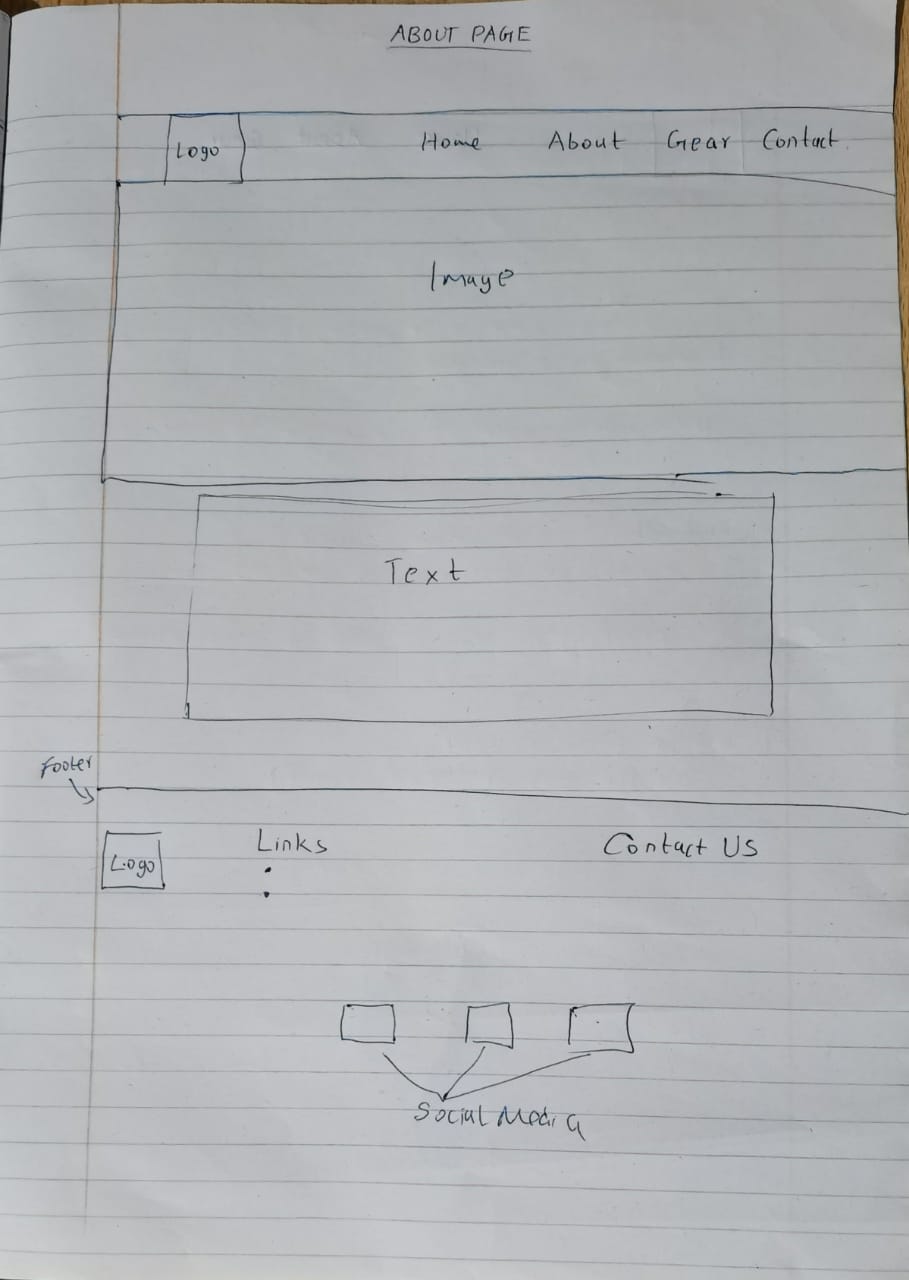 ABOUT PAGE
Logo Home About Gear Contact
Image
Text
Footer
Logo Links Contact US
Social Media